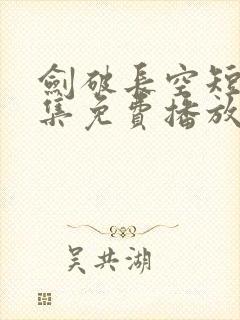 劍破長空短
集免費播放
吴共湖